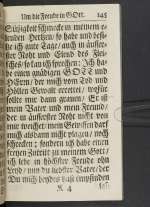 Um die Freude in GOtt. 245
Süßigkeit schmecke in meinem ei-
genden Hertzen / so habe und besi-
tze ich gute Tage / auch in äusser-
ster Noht und Elend des Flei-
sches / so kan ich sprechen: Ich ha-
be einen gnädigen GOTT und
HErrn / der mich vom Tod und
Höllen Gewalt errettet / wofür
solte mir dann grauen? Er ist
mein Vater und mein Freund /
der in äusserster Noht nicht von
mir weichet; mein Gewissen darf
mich alsdann nicht plagen / noch
schrecken; sondern ich habe einen
freyen Zutritt zu meinem Gott /
ich lebe in höchster Freude ohn
Leyd / nun du liebster Vater / der
Du mich dergleichen empfinden
K 4 las-